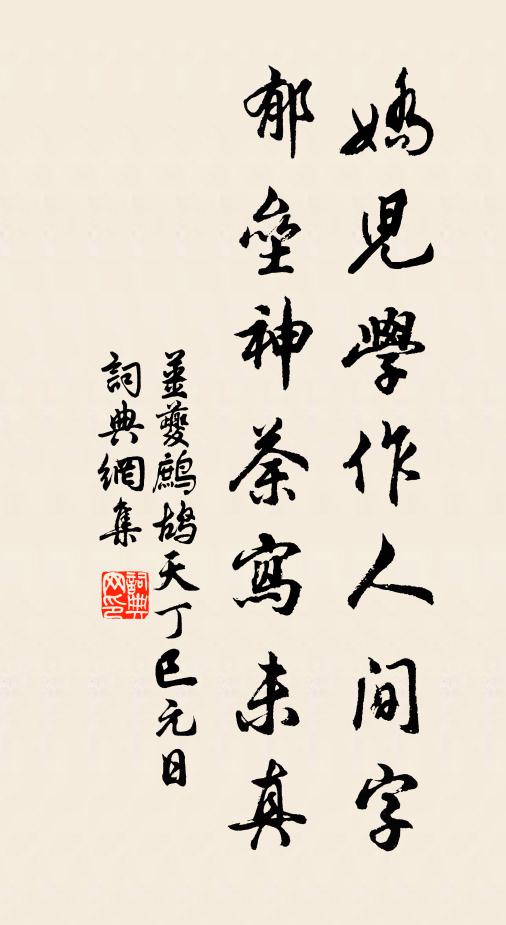 嬌兒學作人間字
郁壘神荼寫未真
姜夔鷓鴣天丁巳元日
詞典網集
詞典
网印